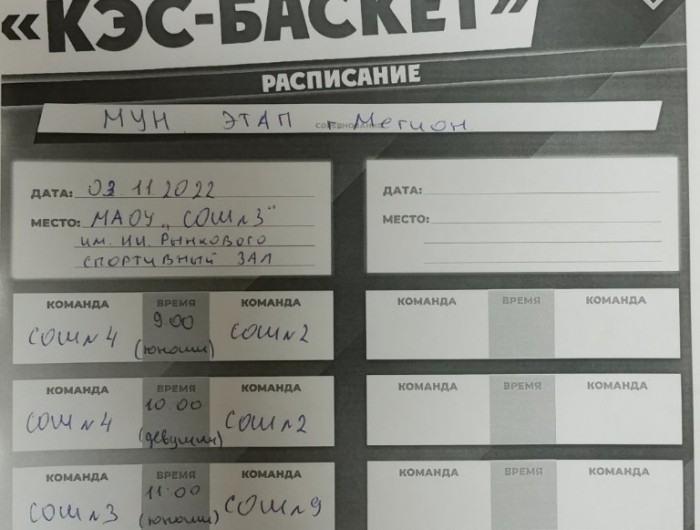 «КЭС-БАСКЕТ»
РАСПИСАНИЕ
МУН. ЭТАП г. Мегион
ДАТА: 03.11.2022
МЕСТО: МАОУ „СОШ№3"
им. И.И. Рынкового
спортивный зал
ДАТА:
МЕСТО:
КОМАНДА ВРЕМЯ КОМАНДА
СОШ№4 9.00 СОШ№2
(юноши)
КОМАНДА ВРЕМЯ КОМАНДА
КОМАНДА ВРЕМЯ КОМАНДА
СОШ№4 10.00 СОШ№2
(девушки)
КОМАНДА ВРЕМЯ КОМАНДА
КОМАНДА ВРЕМЯ КОМАНДА
СОШ№3 11:00 СОШ№9
(юноши)
КОМАНДА ВРЕМЯ КОМАНДА